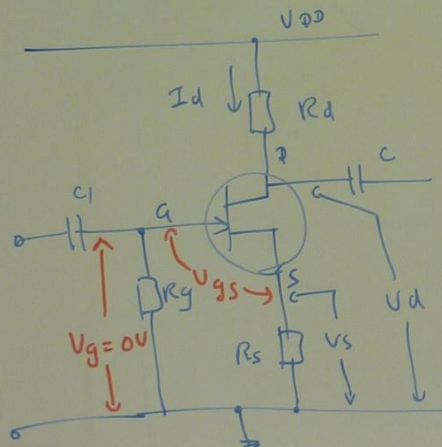 VDD
Id
Rd
D
C
C1
G
S
Vgs
Rg
Vg=0V
Rs
Vs
Vd